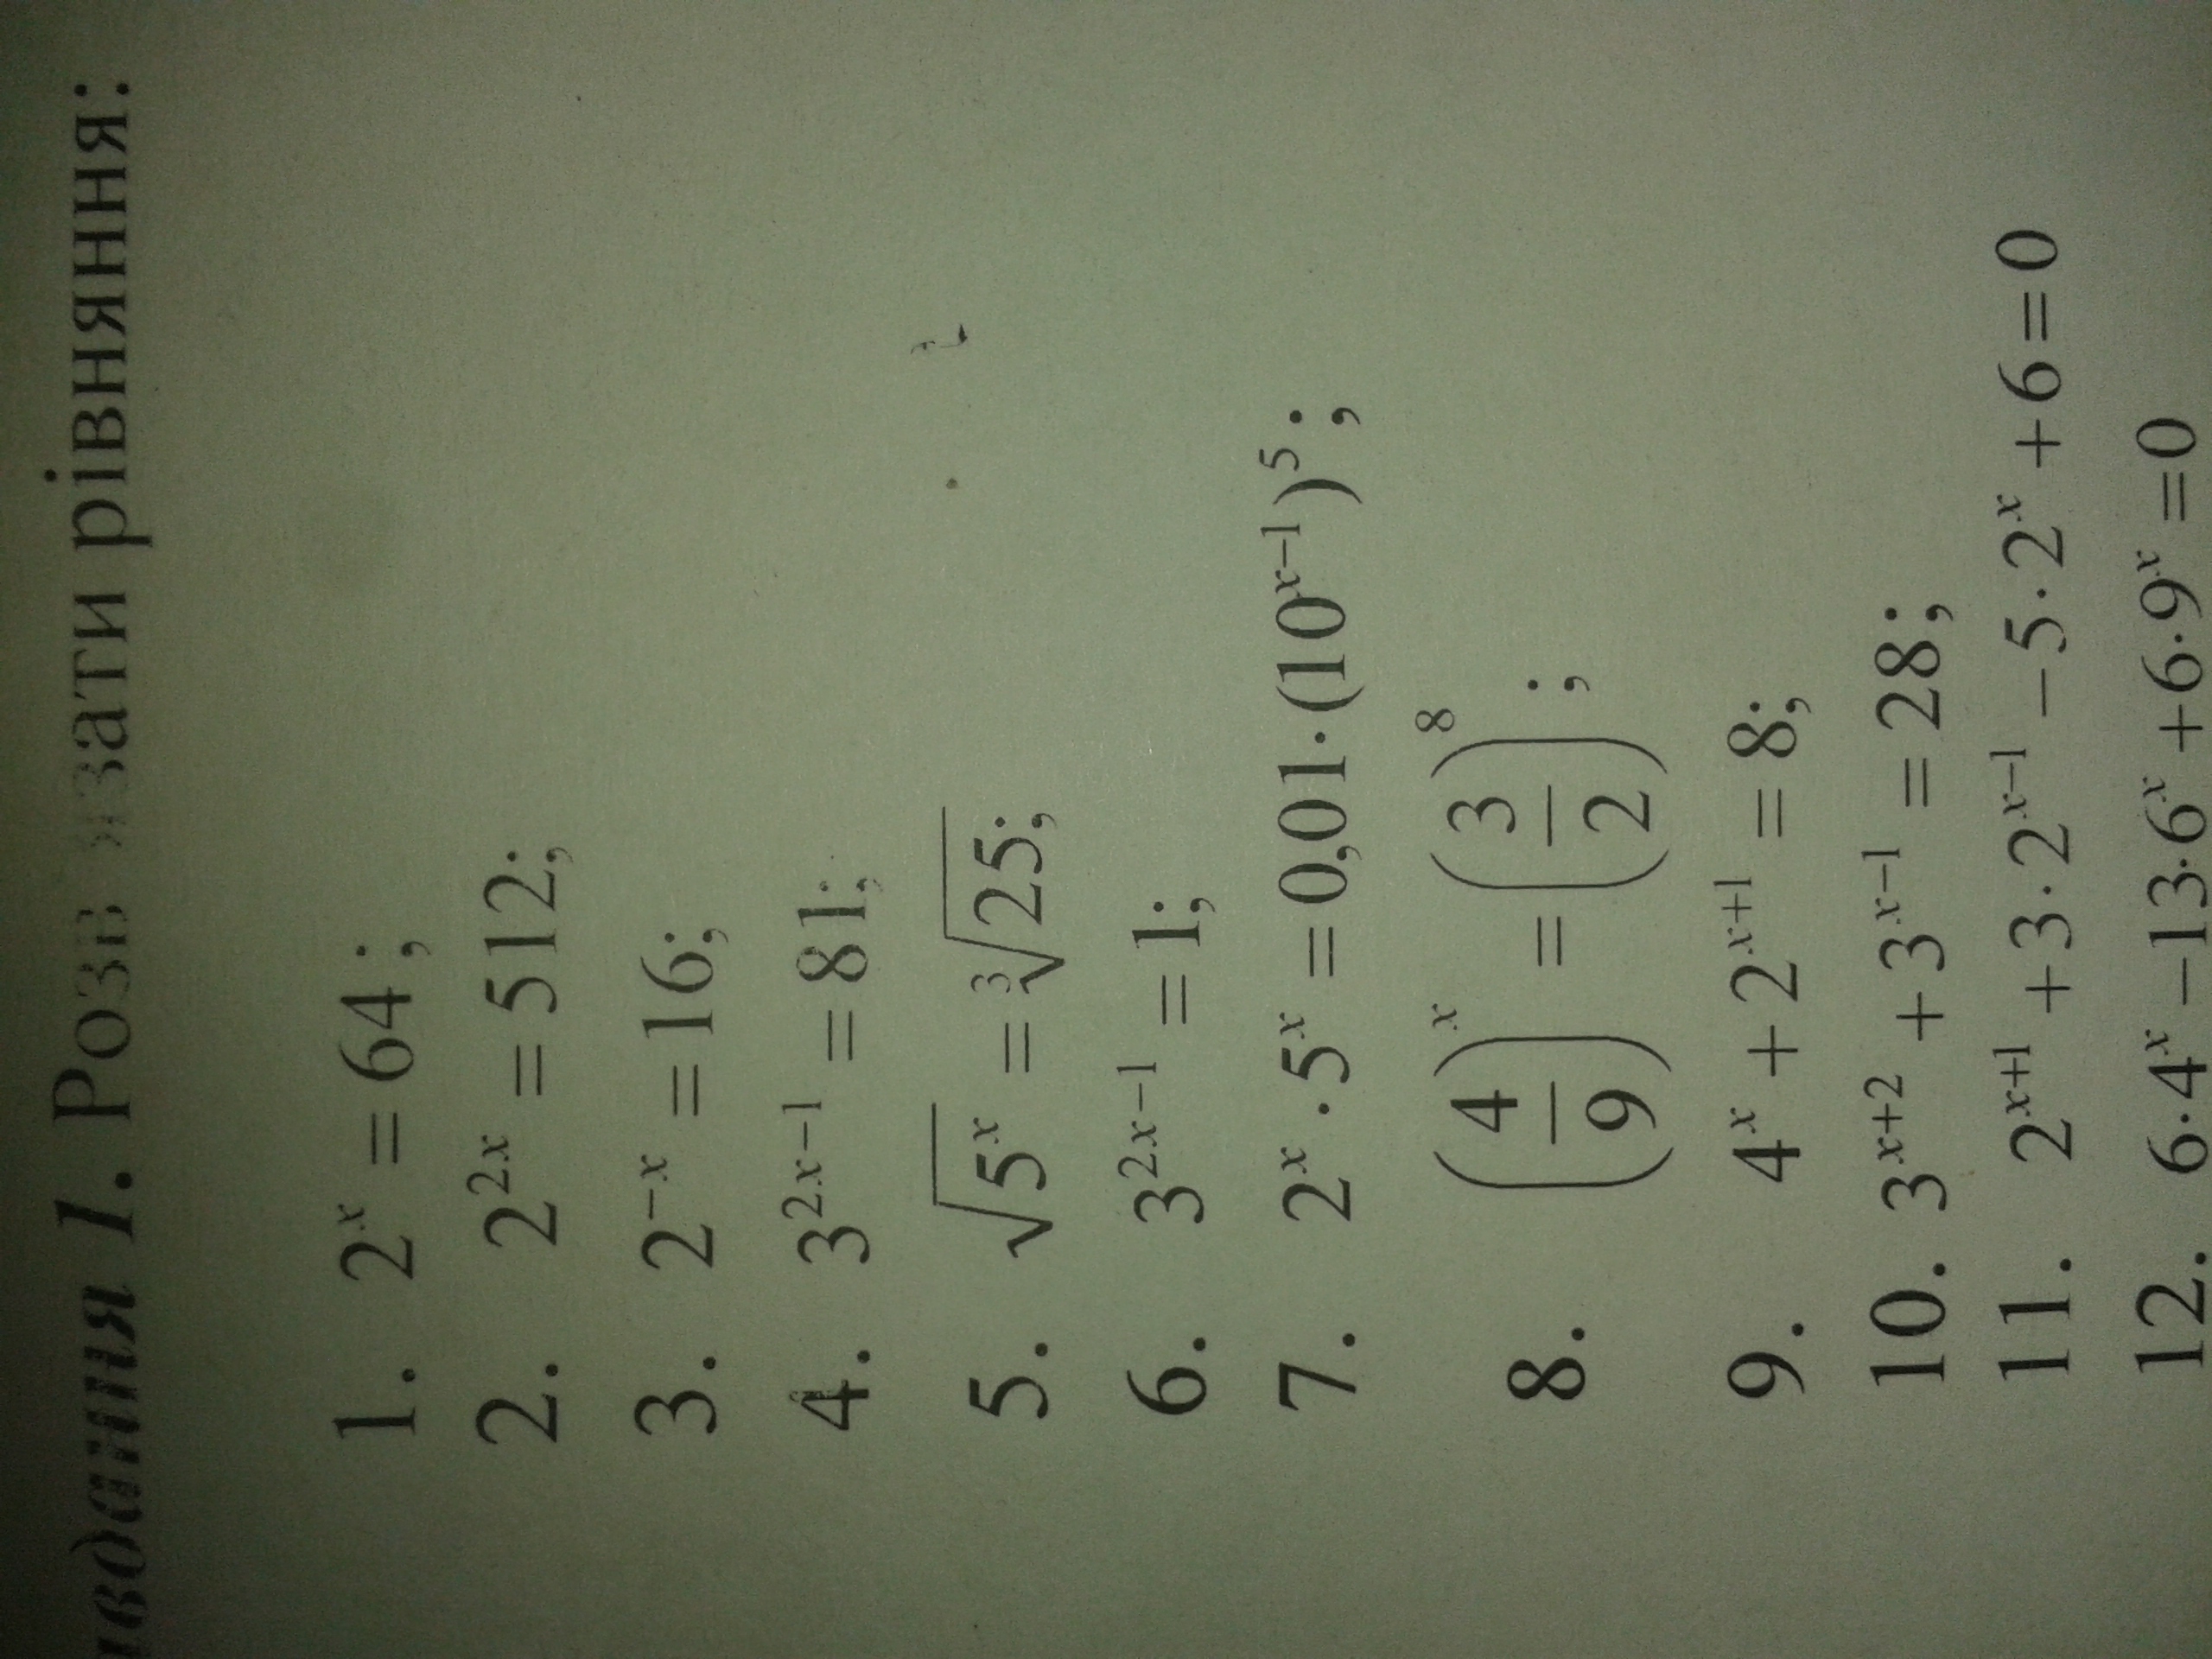 1. Розв'язати рівняння:
1. 2ˣ = 64;
2. 2²ˣ = 512;
3. 2⁻ˣ = 16;
4. 3²ˣ⁻¹ = 81;
5. √(5ˣ) = ∛25;
6. 3²ˣ⁻¹ = 1;
7. 2ˣ · 5ˣ = 0,01 · (10ˣ⁻¹)⁵;
8. (4/9)ˣ = (3/2)⁸;
9. 4ˣ + 2ˣ⁺¹ = 8;
10. 3ˣ⁺² + 3ˣ⁻¹ = 28;
11. 2ˣ⁺¹ + 3 · 2ˣ⁻¹ − 5 · 2ˣ + 6 = 0
12. 6·4ˣ − 13·6ˣ + 6·9ˣ = 0